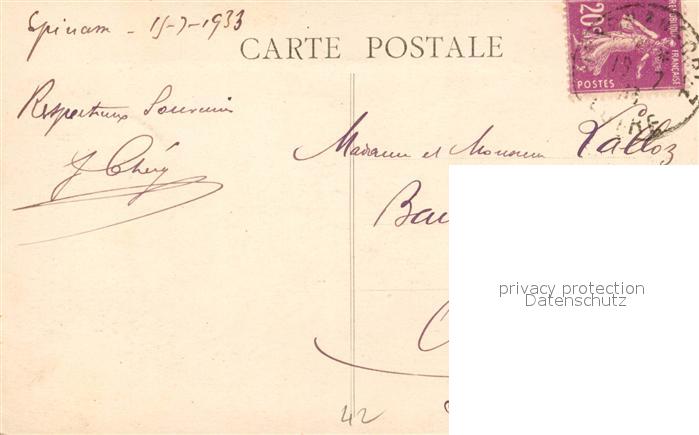 15-7-1933
CARTE POSTALE
20c
POSTES
REPUBLIQUE FRANCAISE
LOIRE
Respectueux Souvenir
J Chéry
Madame et Monsieur Lalloz
Bau
privacy protection
Datenschutz
42